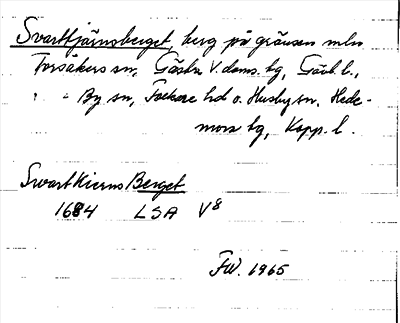 Svarttjärnsberget, berg på gränsen mln
Torsåkers sn, Gästr. V. doms. tg, Gävl. l.,
By sn, Folkare hd o. Husby sn, Hede-
mora tg, Kopp. l.
SwartKierns Berget
1684 LSA V8
FW. 1965